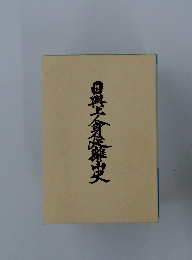 日興上人身延離山史